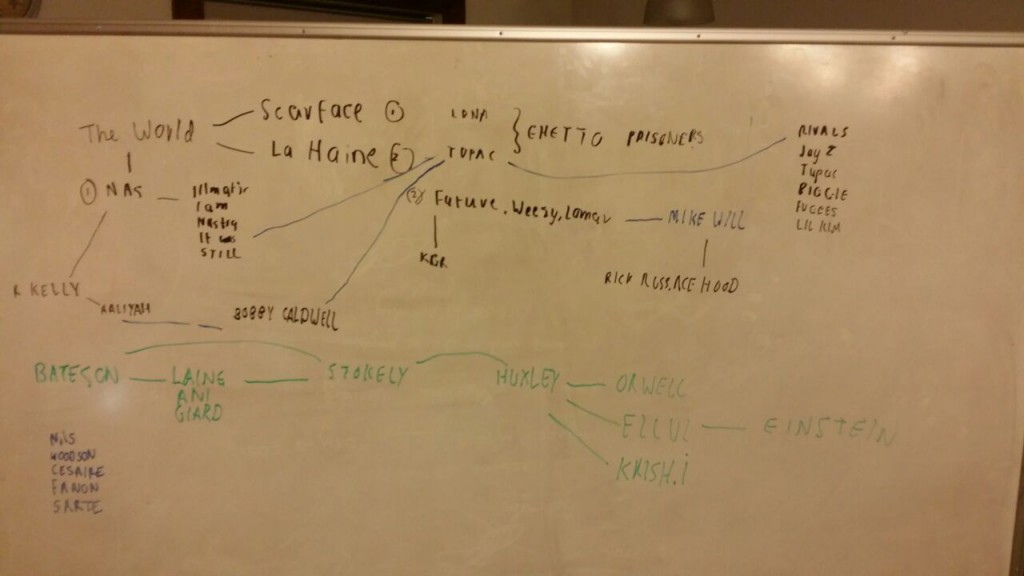 The World
Scarface ①
La Haine ②
① NAS
Illmatic
I am
Nastra
It was
STILL
R KELLY
AALIYAH
BOBBY CALDWELL
LONA
TUPAC
GHETTO PRISONERS
(3) Future, Weezy, Lamar
KGR
MIKE WILL
RICK ROSS, ACE HOOD
RIVALS
Jay Z
Tupac
BIGGIE
FUGEES
LIL KIM
BATESON
LAING
ANI
GIARD
STOKELY
HUXLEY
ORWELL
ELLUL
EINSTEIN
KRISH.i
NILS
WOODSON
CESAIRE
FANON
SARTE